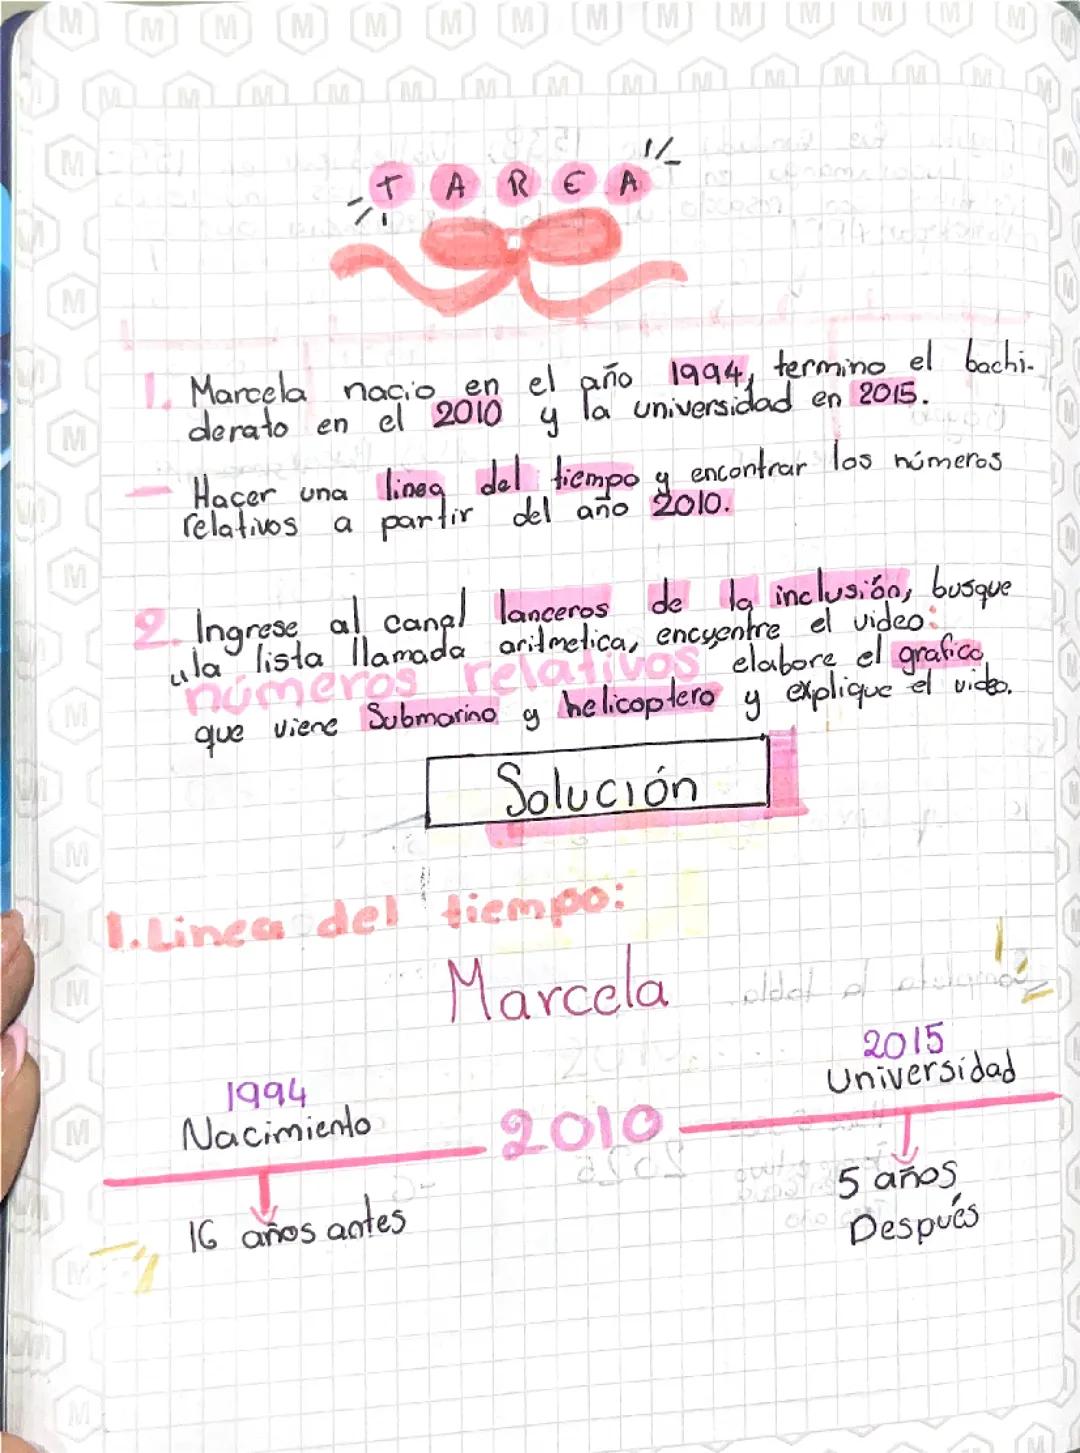 TAREA
1. Marcela nacio en el año 1994, termino el bachi-
derato en el 2010 y la universidad en 2015.
- Hacer una linea del tiempo y encontrar los números
relativos a partir del año 2010.
2. Ingrese al canal lanceros de la inclusión, busque
la lista llamada aritmetica, encuentre el video:
números relativos elabore el grafico
que viene Submarino y helicoptero y explique el video.
Solución
1. Linea del tiempo:
Marcela
1994
Nacimiento
16 años antes
2010
2015
Universidad
5 años
Después